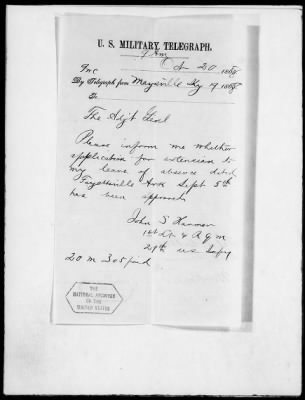 U. S. MILITARY TELEGRAPH.
9 Am
Oct 20 1868
By Telegraph from Maysville Ky 19 1868
To
The Adjt Genl
Please inform me whether
application for extension to
my leave of absence dated
Fayetteville Ark Sept 5th
has been approved
John S
1st Lt & R Q M
29th US Infty
20 M 305 paid
THE
NATIONAL ARCHIVES
OF THE
UNITED STATES